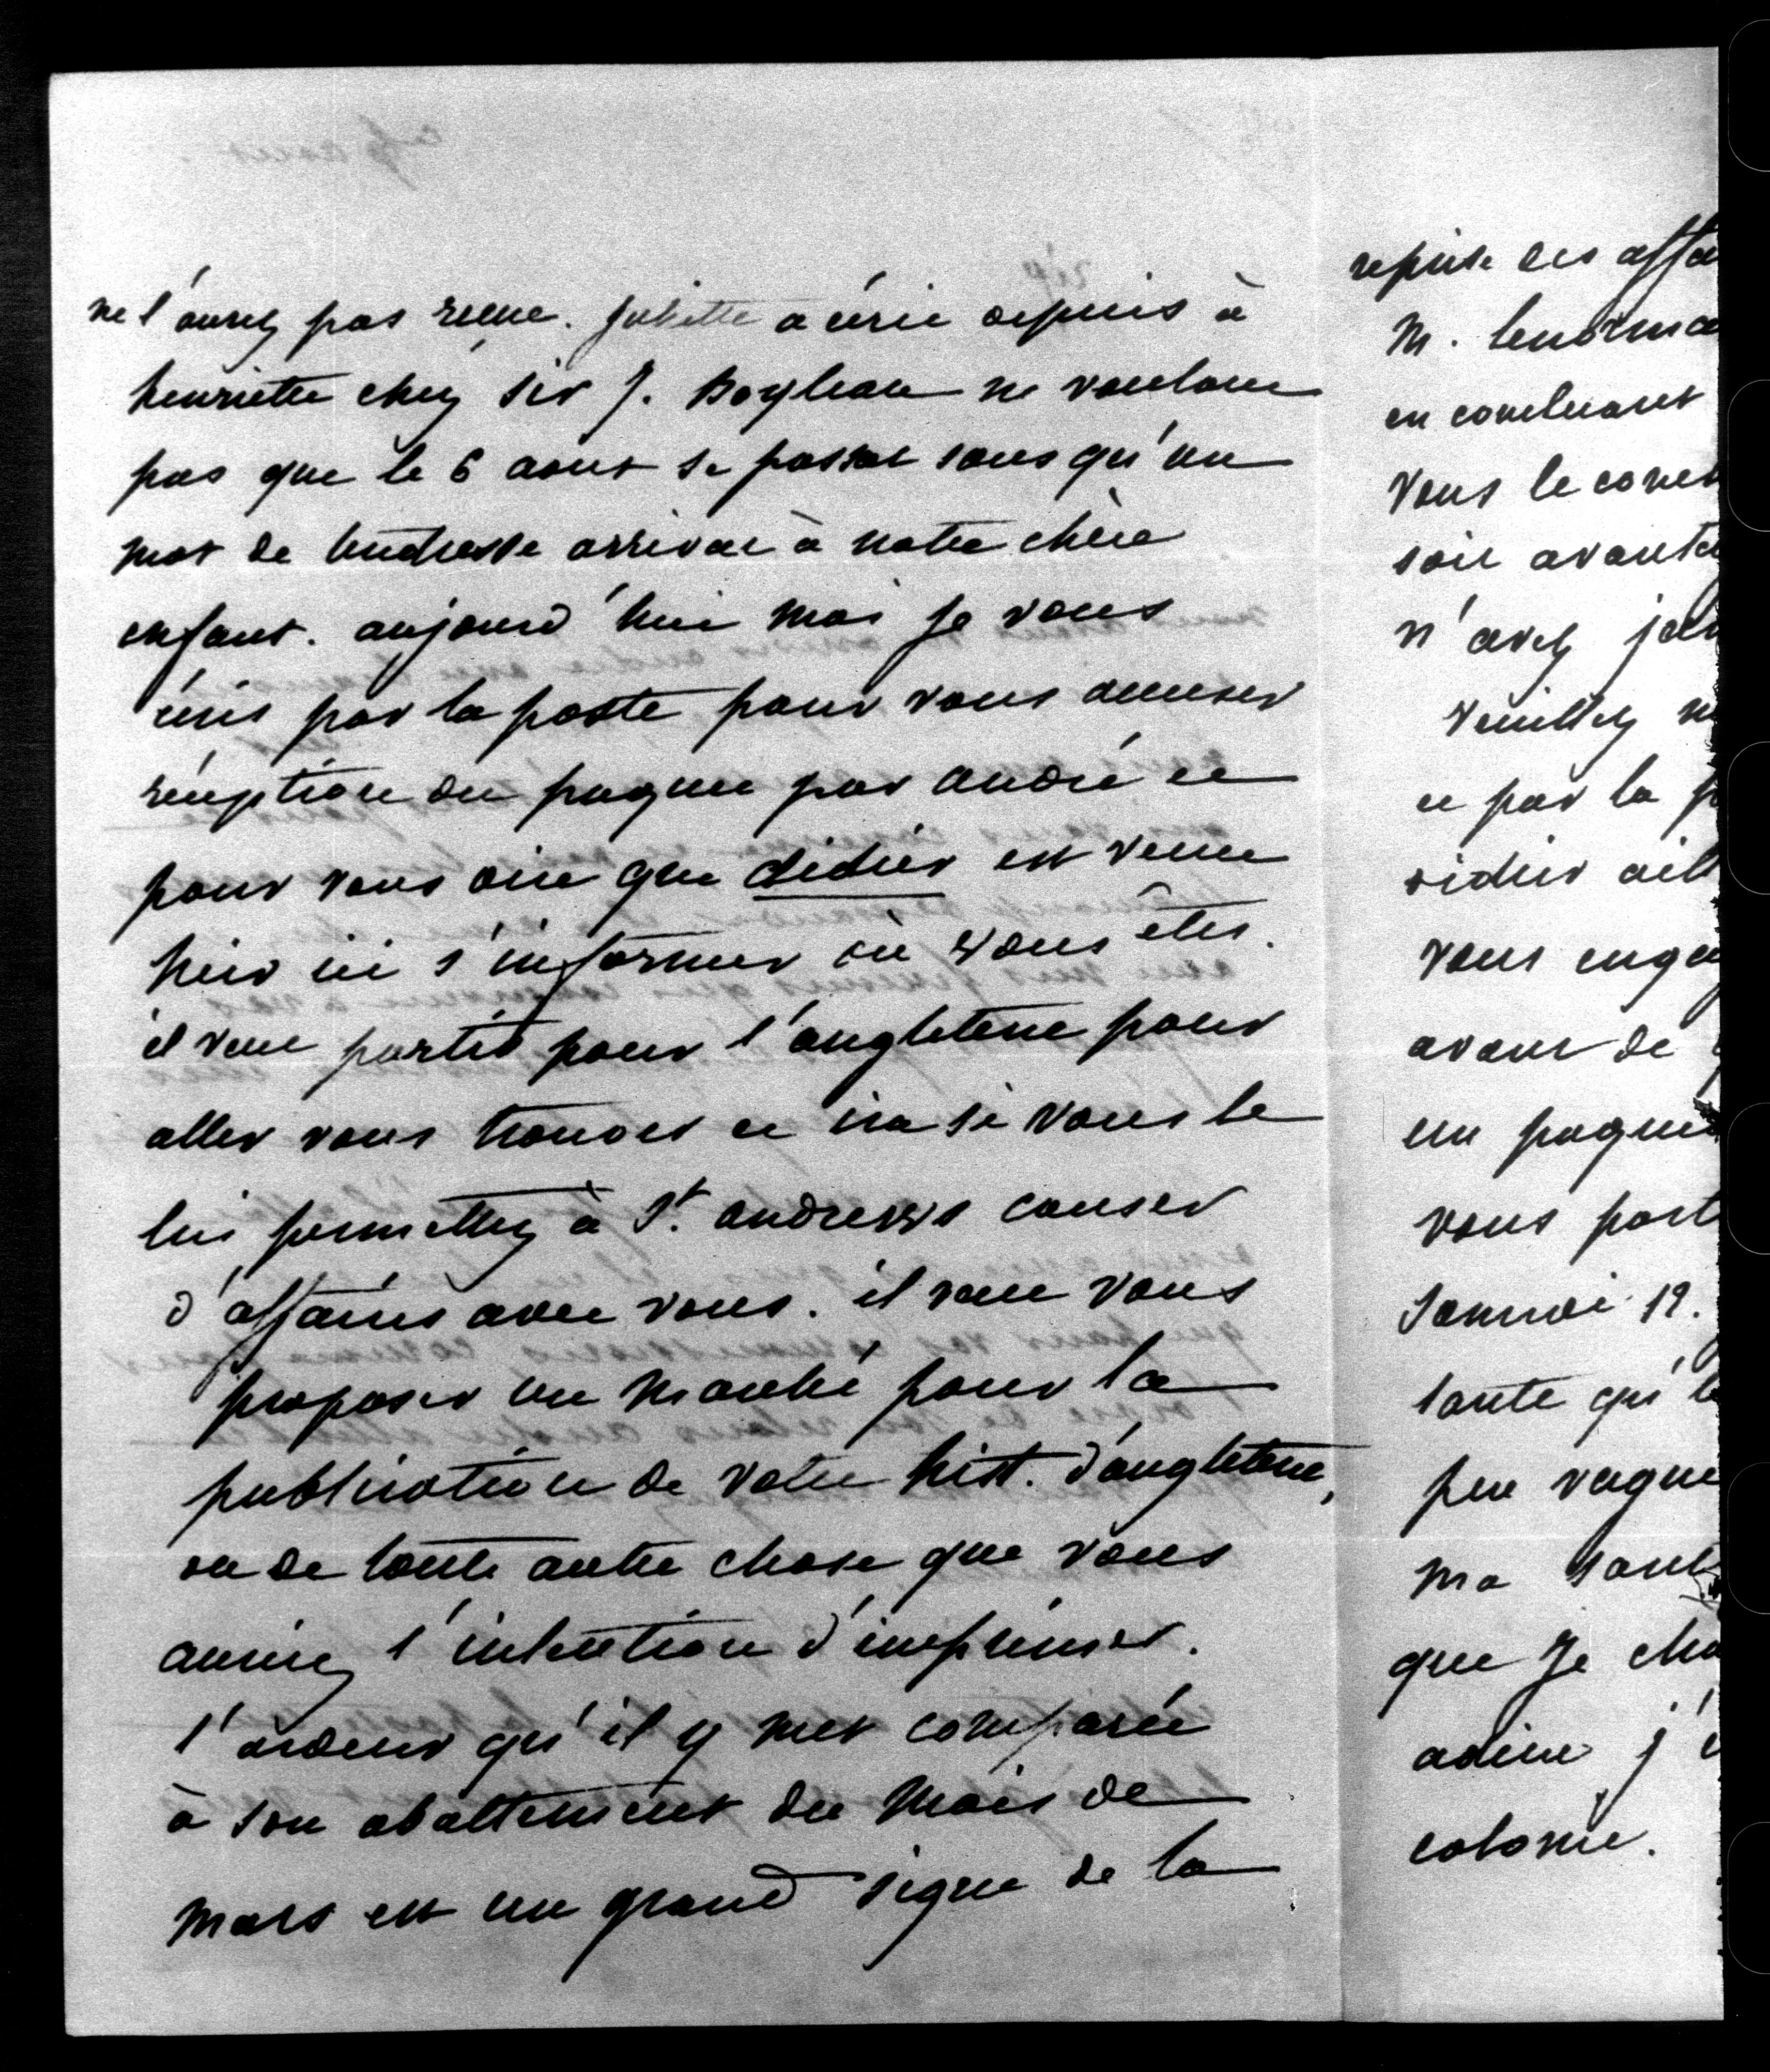 ne l'aurez pas reçue. Juliette a écrit depuis à
henriette chez Sir J. Boyleau ne voulant
pas que le 6 aout se passat sans qu'un
mot de tendresse arrivat à notre chère
enfant. aujourd'hui moi je vous
écris par la poste pour vous accuser
réception du paquet par andré et
pour vous dire que didier est venu
hier ici s'informer où vous êtes.
il veut partir pour l'angleterre pour
aller vous trouver et ira si vous le
lui permettez à St. andrews causer
d'affaires avec vous. il veut vous
proposer un marché pour la
publication de votre hist. d'angleterre,
ou de toute autre chose que vous
auriez l'intention d'imprimer.
l'ardeur qu'il y met comparée
à son abattement du mois de
mars est un grand signe de la
reprise des affai
M. lenorma
en concluant
vous le con
soit avanta
n'avez ja
veuillez
et par la p
didier ail
vous enga
avant de
un paque
vous port
Samedi 12.
tante qu'
peu vague
ma sant
que je
adieu j'
colonie.